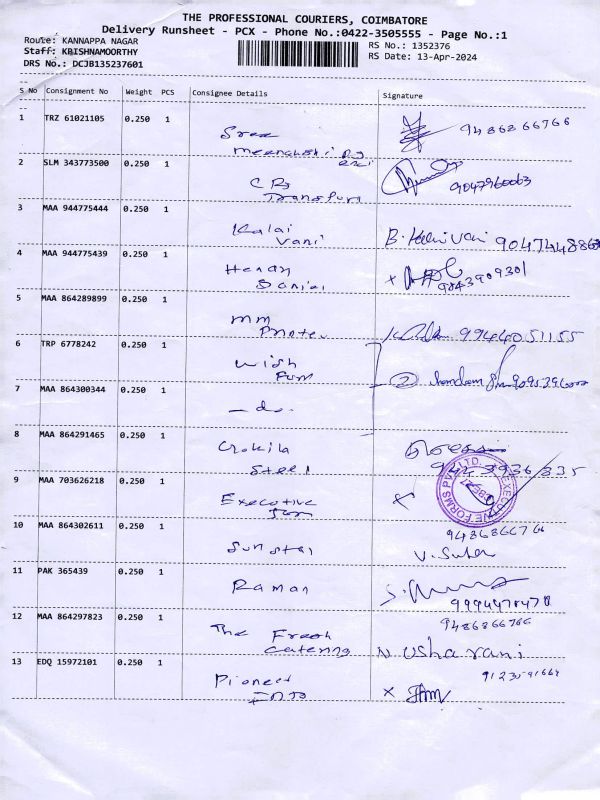 THE PROFESSIONAL COURIERS, COIMBATORE
Delivery Runsheet - PCX - Phone No.:0422-3505555 - Page No.:1
Route: KANNAPPA NAGAR
Staff: KRISHNAMOORTHY
DRS No.: DCJB135237601
RS No.: 1352376
RS Date: 13-Apr-2024
S No Consignment No Weight PCS Consignee Details Signature
1 TRZ 61021105 0.250 1 Sree 9486866766
2 SLM 343773500 0.250 1 9047960063
3 MAA 944775444 0.250 1 Kalai
Vani
4 MAA 944775439 0.250 1 9843909301
5 MAA 864289899 0.250 1 MM 9944051155
6 TRP 6778242 0.250 1 Wish
7 MAA 864300344 0.250 1 - do.
8 MAA 864291465 0.250 1 Gokila
Steel
9 MAA 703626218 0.250 1 Executive
EXECUTIVE FORMS PVT. LTD.
10 MAA 864302611 0.250 1 Sun star
11 PAK 365439 0.250 1 Raman 9994478478
12 MAA 864297823 0.250 1 The Fresh 9486866766
Catering N Usha rani
13 EDQ 15972101 0.250 1 Pioneer